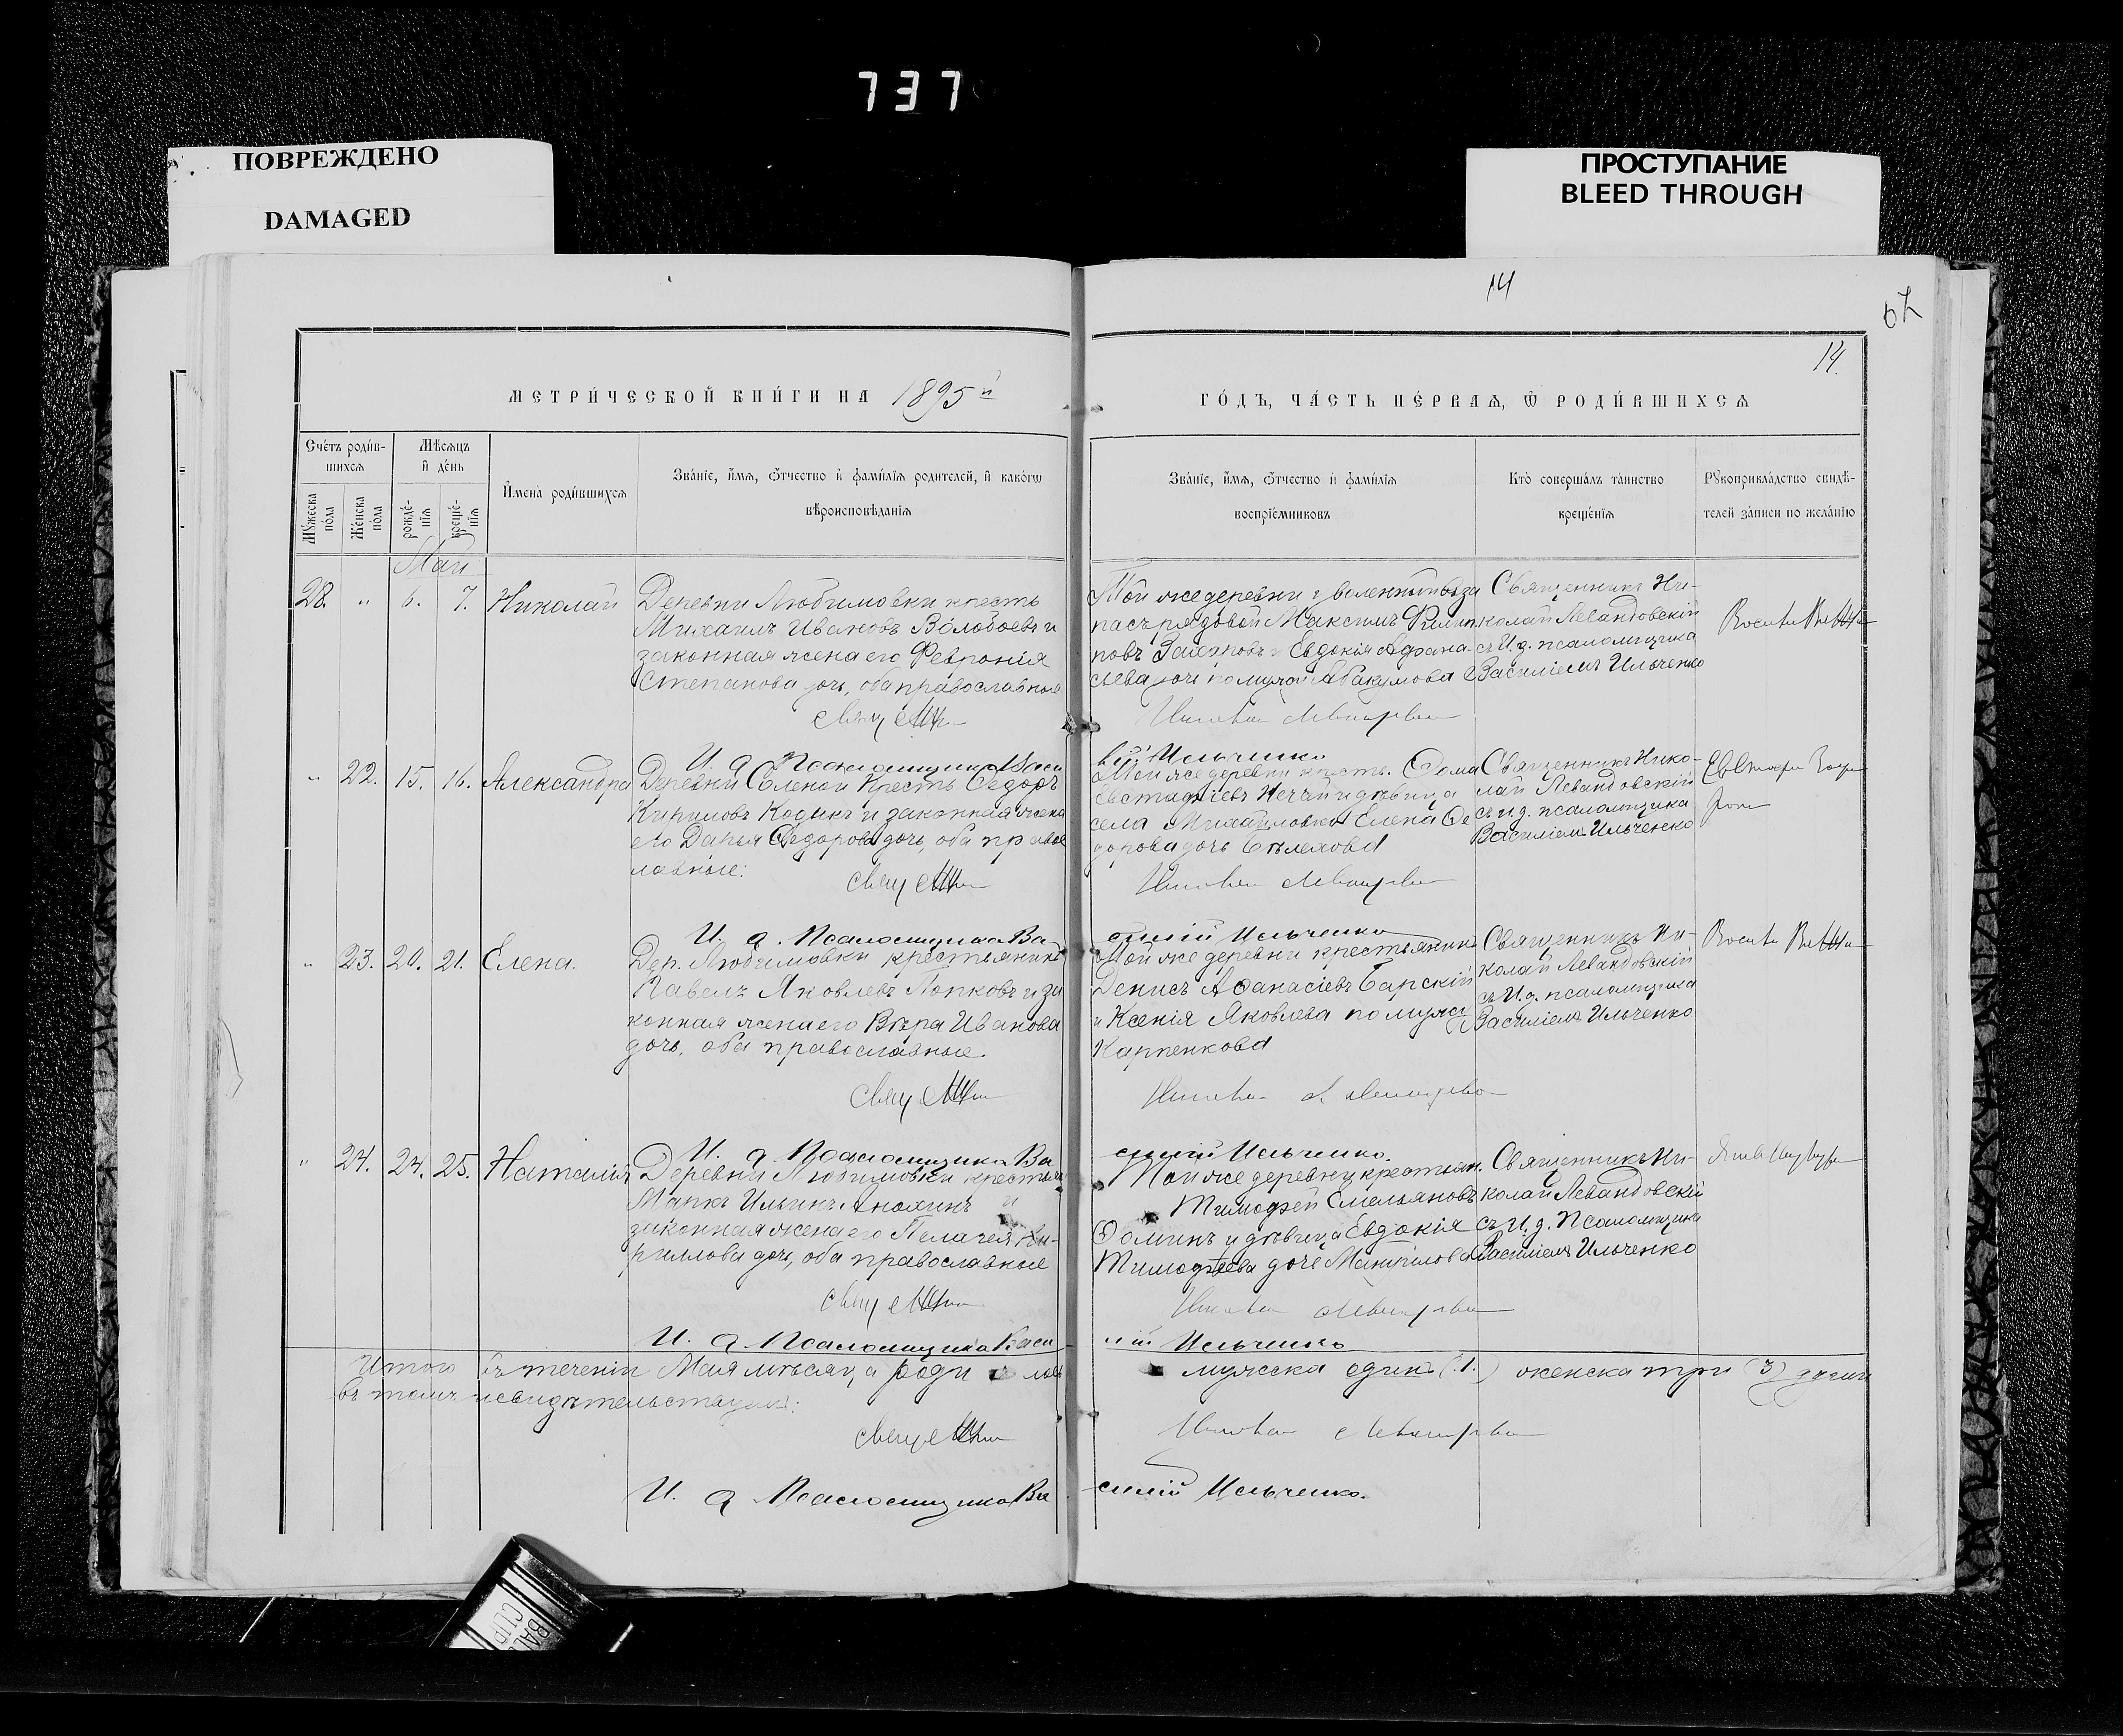 737
ПОВРЕЖДЕНО
DAMAGED
ПРОСТУПАНИЕ
BLEED THROUGH
14
62
14.
МЕТРИ́ЧЕСКОЙ КНИ́ГИ НА 1895й
ГО́ДЪ, ЧА́СТЬ ПЕ́РВАѦ, Ѿ РОДИ́ВШИХСѦ
Сче́тъ роди́в-
шихсѧ
Мѣ́сѧцъ
и҆ де́нь
Мꙋ́жеска
по́ла
Же́нска
по́ла
рожде́-
нїѧ
креще́-
нїѧ
И҆мена̀ роди́вшихсѧ
Зва́нїе, и҆́мѧ, ѻ҆́тчество и҆ фами́лїѧ родителей, и҆ како́гѡ
вѣроисповѣ́данїѧ
Зва́нїе, и҆́мѧ, ѻ҆́тчество и҆ фами́лїѧ
воспрїе́мниковъ
Кто̀ соверша́лъ та́инство
креще́нїѧ
Рꙋкоприкла́дство свидѣ́-
телей за́писи по жела́нїю
Май
28. " 6. 7. Николай
Деревни Любимовки кресть
Михаилъ Ивановъ Волобоевъ и
законная жена его Феврония
Степанова дочь, оба православные
Той же деревни уволенный въ за
пасъ рядовой Максимъ Филип
повъ и Евдокія Афана
сіева дочь по мужѣ Абакумова
Священникъ Ни-
колай Левандовскій
съ И. д. псаломщика
Василіемъ Ильченко
Свящ
Николай Левандовскій
И. д. Псаломщика Васи
лій Ильченко
" 22. 15. 16. Александра
Деревни Соленой Кресть Ѳедоръ
Кириловъ Кодыкъ и законная жена
его Дарья Ѳедорова дочь, оба правос
лавные:
Той же деревни кресть. Ѳома
Евстафіевъ Нечай и дѣвица
села Михайловки Елена Ѳе
дорова дочь Бѣляхова
Священникъ Нико-
лай Левандовскій
съ и. д. псаломщика
Василіемъ Ильченко
Свящ
Николай Левандовскій
И. д. Псаломщика Ва
силій Ильченко
" 23. 20. 21. Елена.
Дер. Любимовки крестьянинъ
Павелъ Яковлевъ Попковъ и за
конная жена его Вѣра Иванова
дочь, оба православные.
Той же деревни крестьянинъ
Денисъ Аѳанасіевъ Барскій
и Ксенія Яковлева по мужѣ
Карпенкова
Священникъ Ни-
колай Левандовскій
съ И. д. псаломщика
Василіемъ Ильченко
Свящ
Николай Левандовскій
И. д. Псаломщика Ва
силій Ильченко.
" 24. 24. 25. Наталія
Деревни Любимовки крестьян
Маркъ Ильинъ Анохинъ и
законная жена его Пелагея Ки-
риллова дочь, оба православные
Той же деревни крестьян.
Тимофей Емельяновъ
Ѳоминъ и дѣвица Евдокія
Тимофеева дочь
Священникъ Ни-
колай Левандовскій
съ И. д. Псаломщика
Василіемъ Ильченко
Свящ
Николай Левандовскій
И. д. Псаломщика Васи
лій Ильченко
Итого въ теченіи Мая мѣсяца роди лось
мужска одинъ (1.) женска три (3) души
въ томъ и свидѣтельствуемъ:
Свящ
Николай Левандовскій
И. д. Псаломщика Ва
силій Ильченко.